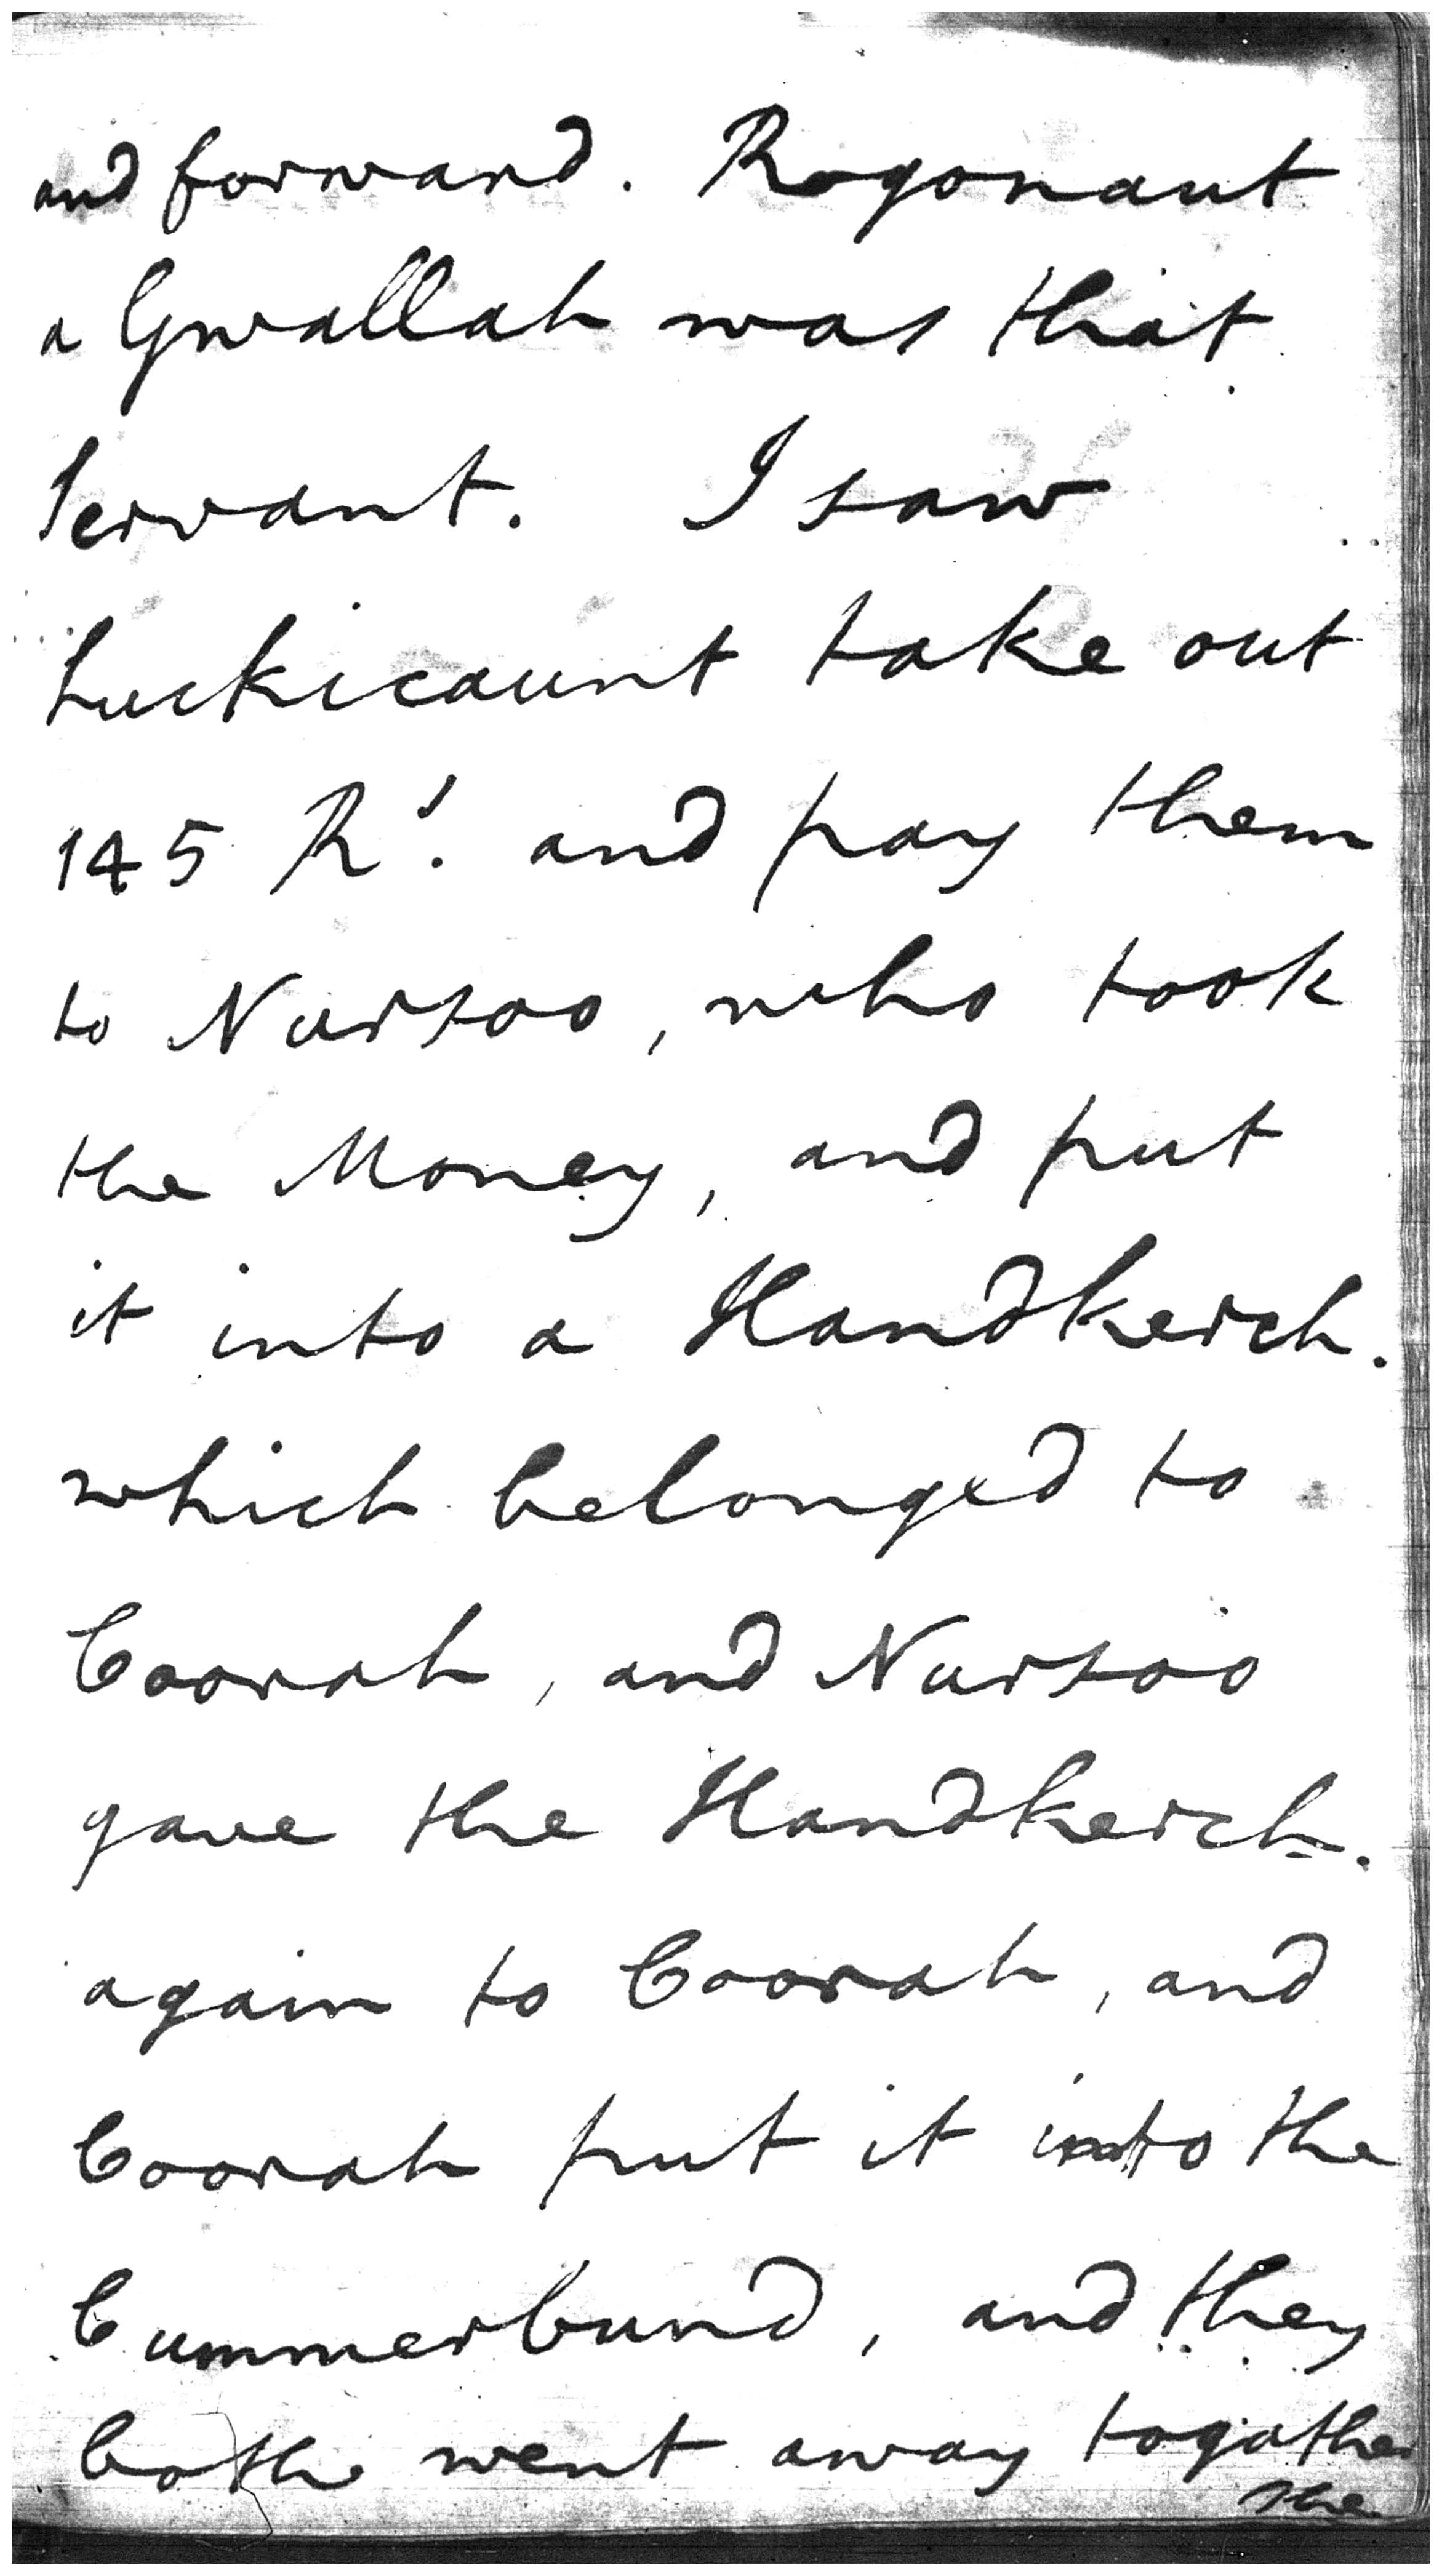 and forward. Rogonaut
a Gwallah was that
Servant. I saw
Luckicaunt take out
145 Rs. and pay them
to Nursoo, who took
the Money, and put
it into a Handkerch.
which belonged to
Coorah, and Nursoo
gave the Handkerch.
again to Coorah, and
Coorah put it into the
Cummerbund, and they
both went away together